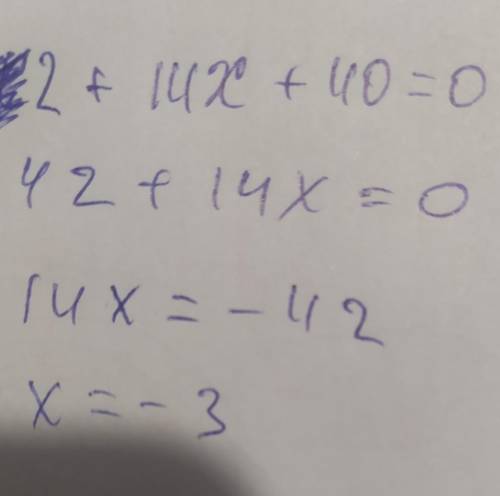 2 + 14x + 40 = 0
42 + 14x = 0
14x = - 42
x = - 3